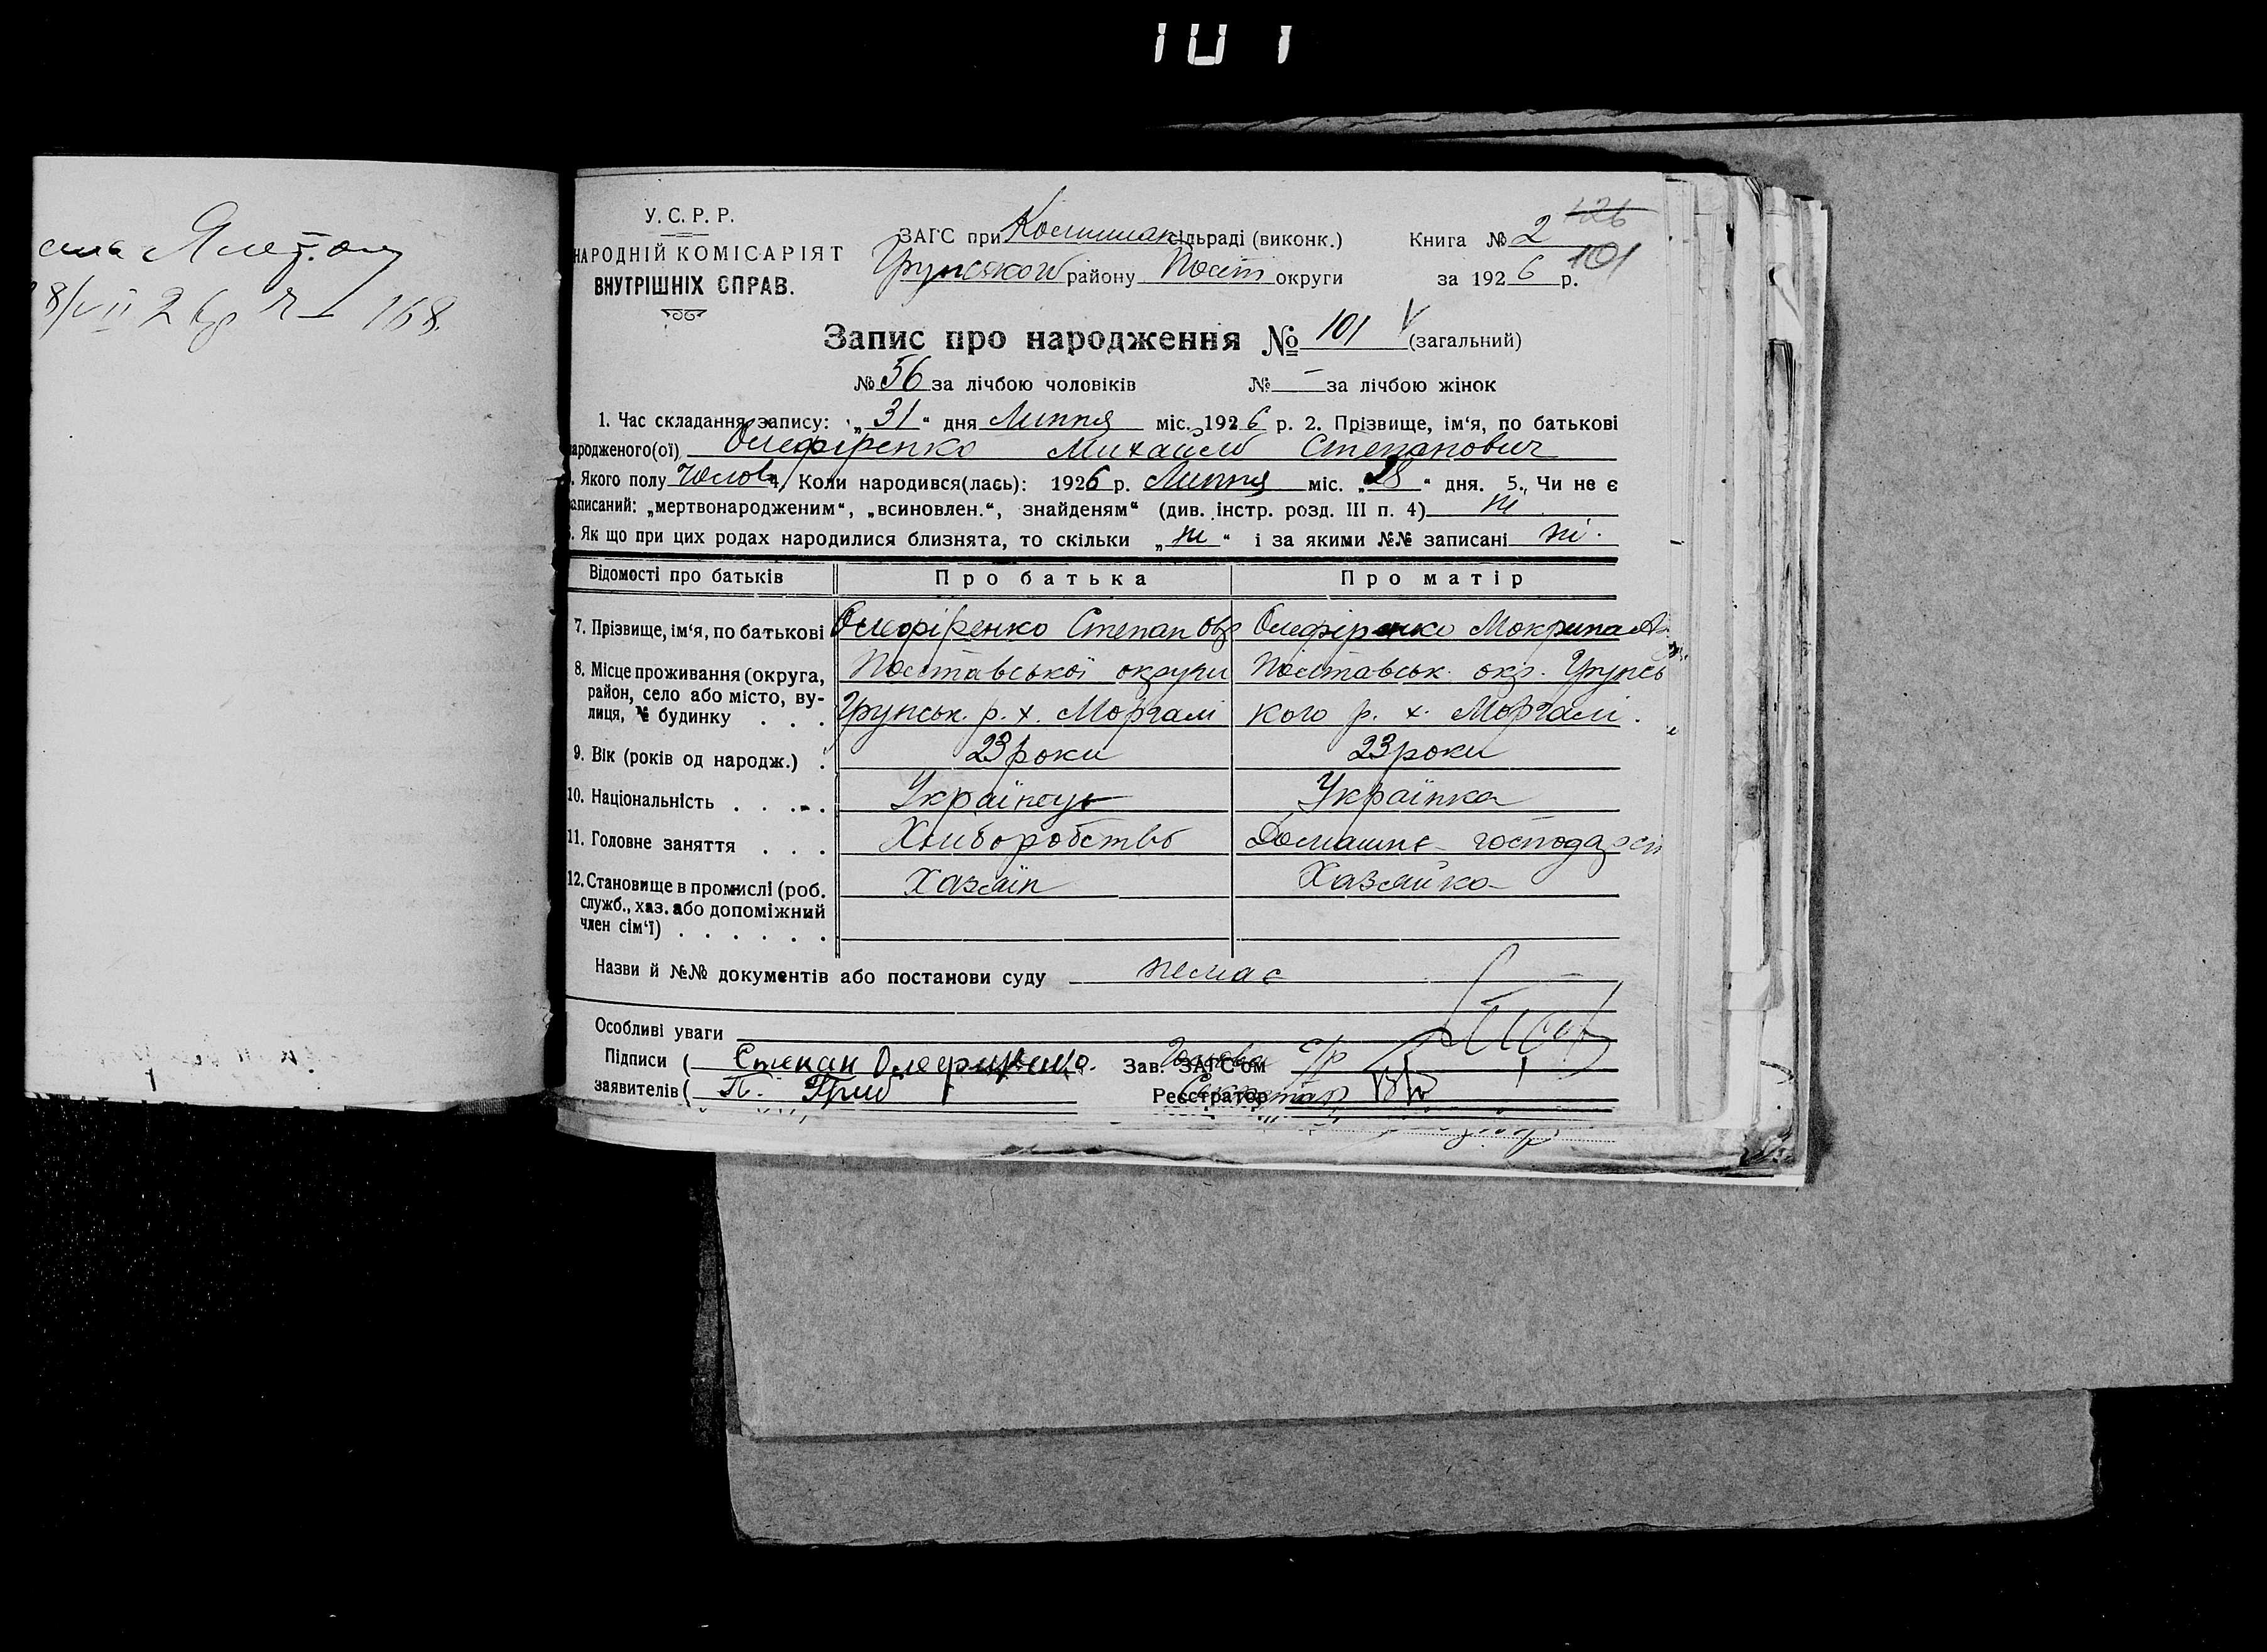 101
У. С. Р. Р.
НАРОДНІЙ КОМІСАРІЯТ
ВНУТРІШНІХ СПРАВ.
ЗАГС при сільраді (виконк.)
Грунського району Полт округи
Книга № 2 126
101
за 1926 р.
8/VII 26 р 168.
Запис про народження № 101 V (загальний)
№ 56 за лічбою чоловіків № — за лічбою жінок
1. Час складання запису: „31“ дня Липня міс. 1926 р. 2. Прізвище, ім‘я, по батькові
ародженого(ої) Олефіренко Михайло Степанович
. Якого полу Чолов. 4. Коли народився(лась): 1926 р. Липня міс. „28“ дня. 5. Чи не є
аписаний: „мертвонародженим“, „всиновлен.“, знайденям“ (див. інстр. розд. III п. 4) ні
. Як що при цих родах народилися близнята, то скільки „ні“ і за якими №№ записані ні.
Відомості про батьків Про батька Про матір
7. Прізвище, ім‘я, по батькові Олефіренко Степан Олефіренко Мокрина
8. Місце проживання (округа, Полтавської округи Полтавськ. окр. Грунсь
район, село або місто, ву- Грунськ. р. х. Моргалі кого р. х. Моргалі.
лиця, № будинку . . .
9. Вік (років од народж.) . 23 роки 23 роки
10. Національність . . . . Українець Українка
11. Головне заняття . . . Хліборобство Домашнє господарст
12. Становище в промислі (роб. Хазяїн Хазяйка
служб., хаз. або допоміжний
член сім‘ї) . . . . . .
Назви й №№ документів або постанови суду немає
Особливі уваги
Підписи ( Степан Олефиренко. Зав. ЗАГС‘ом Голова с/р
заявителів ( П. Гриб Реєстратор Секретар